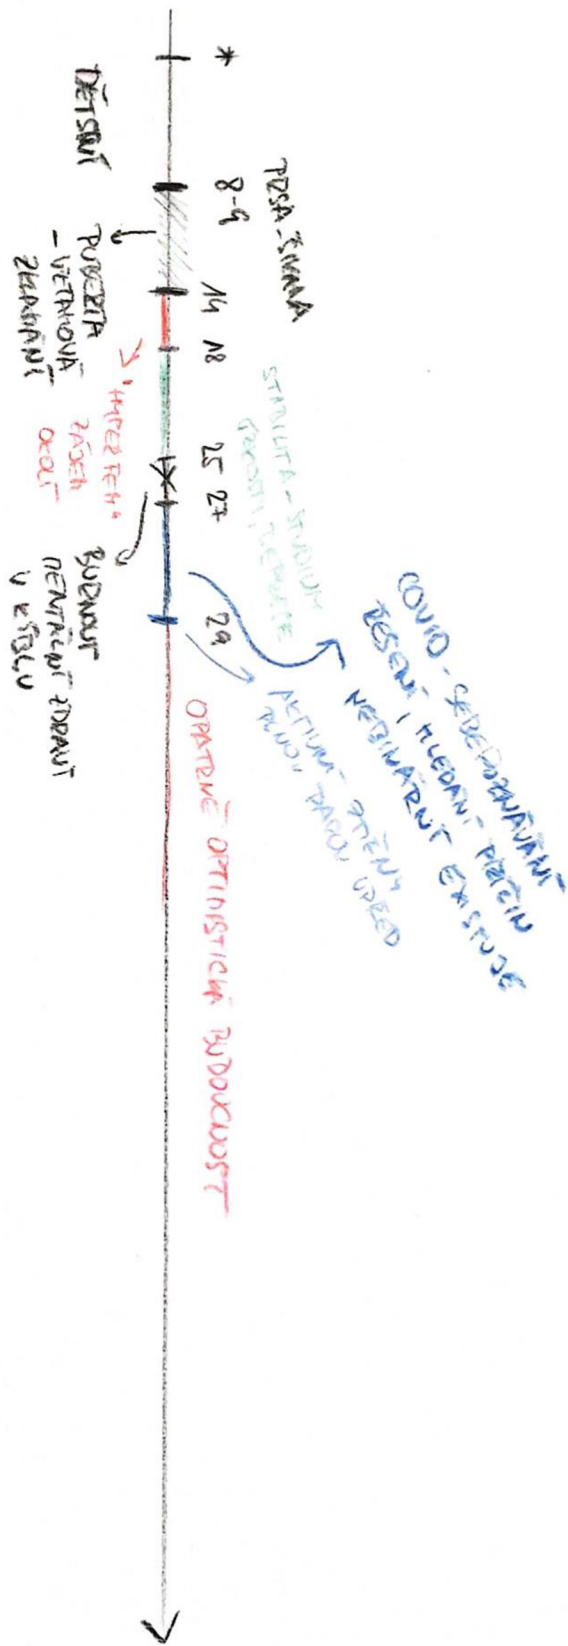 *
DĚTSTVÍ
8-9
PRSA-ŠIKANA
PUBERTA
- VZTAHOVÁ
ZKLAMÁNÍ
14
18
"HYPERFEM"
ZÁJEM
OKOLÍ
STABILITA - STUDIUM
ÚZKOSTI, DEPRESE
25 27
BURNOUT
MENTÁLNÍ ZDRAVÍ
V KÝBLU
COVID - SEBEPOZNÁVÁNÍ
ŘEŠENÍ, HLEDÁNÍ PŘÍČIN
NEBINÁRNÍ EXISTUJE
29
AKTIVNÍ ZMĚNY
ZNOVU VPŘED
OPATRNĚ OPTIMISTICKÁ BUDOUCNOST